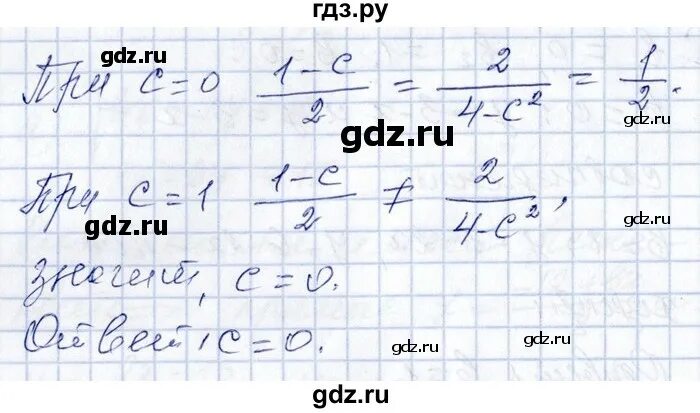 гдз.ру
При c=0 (1-c)/2 = 2/(4-c²) = 1/2.
gdz.ru
gdz.ru
gdz.ru
gdz.ru
При c=1 (1-c)/2 ≠ 2/(4-c²),
gdz.ru
gdz.ru
значит, c=0.
Ответ: c=0.
gdz.ru
gdz.ru